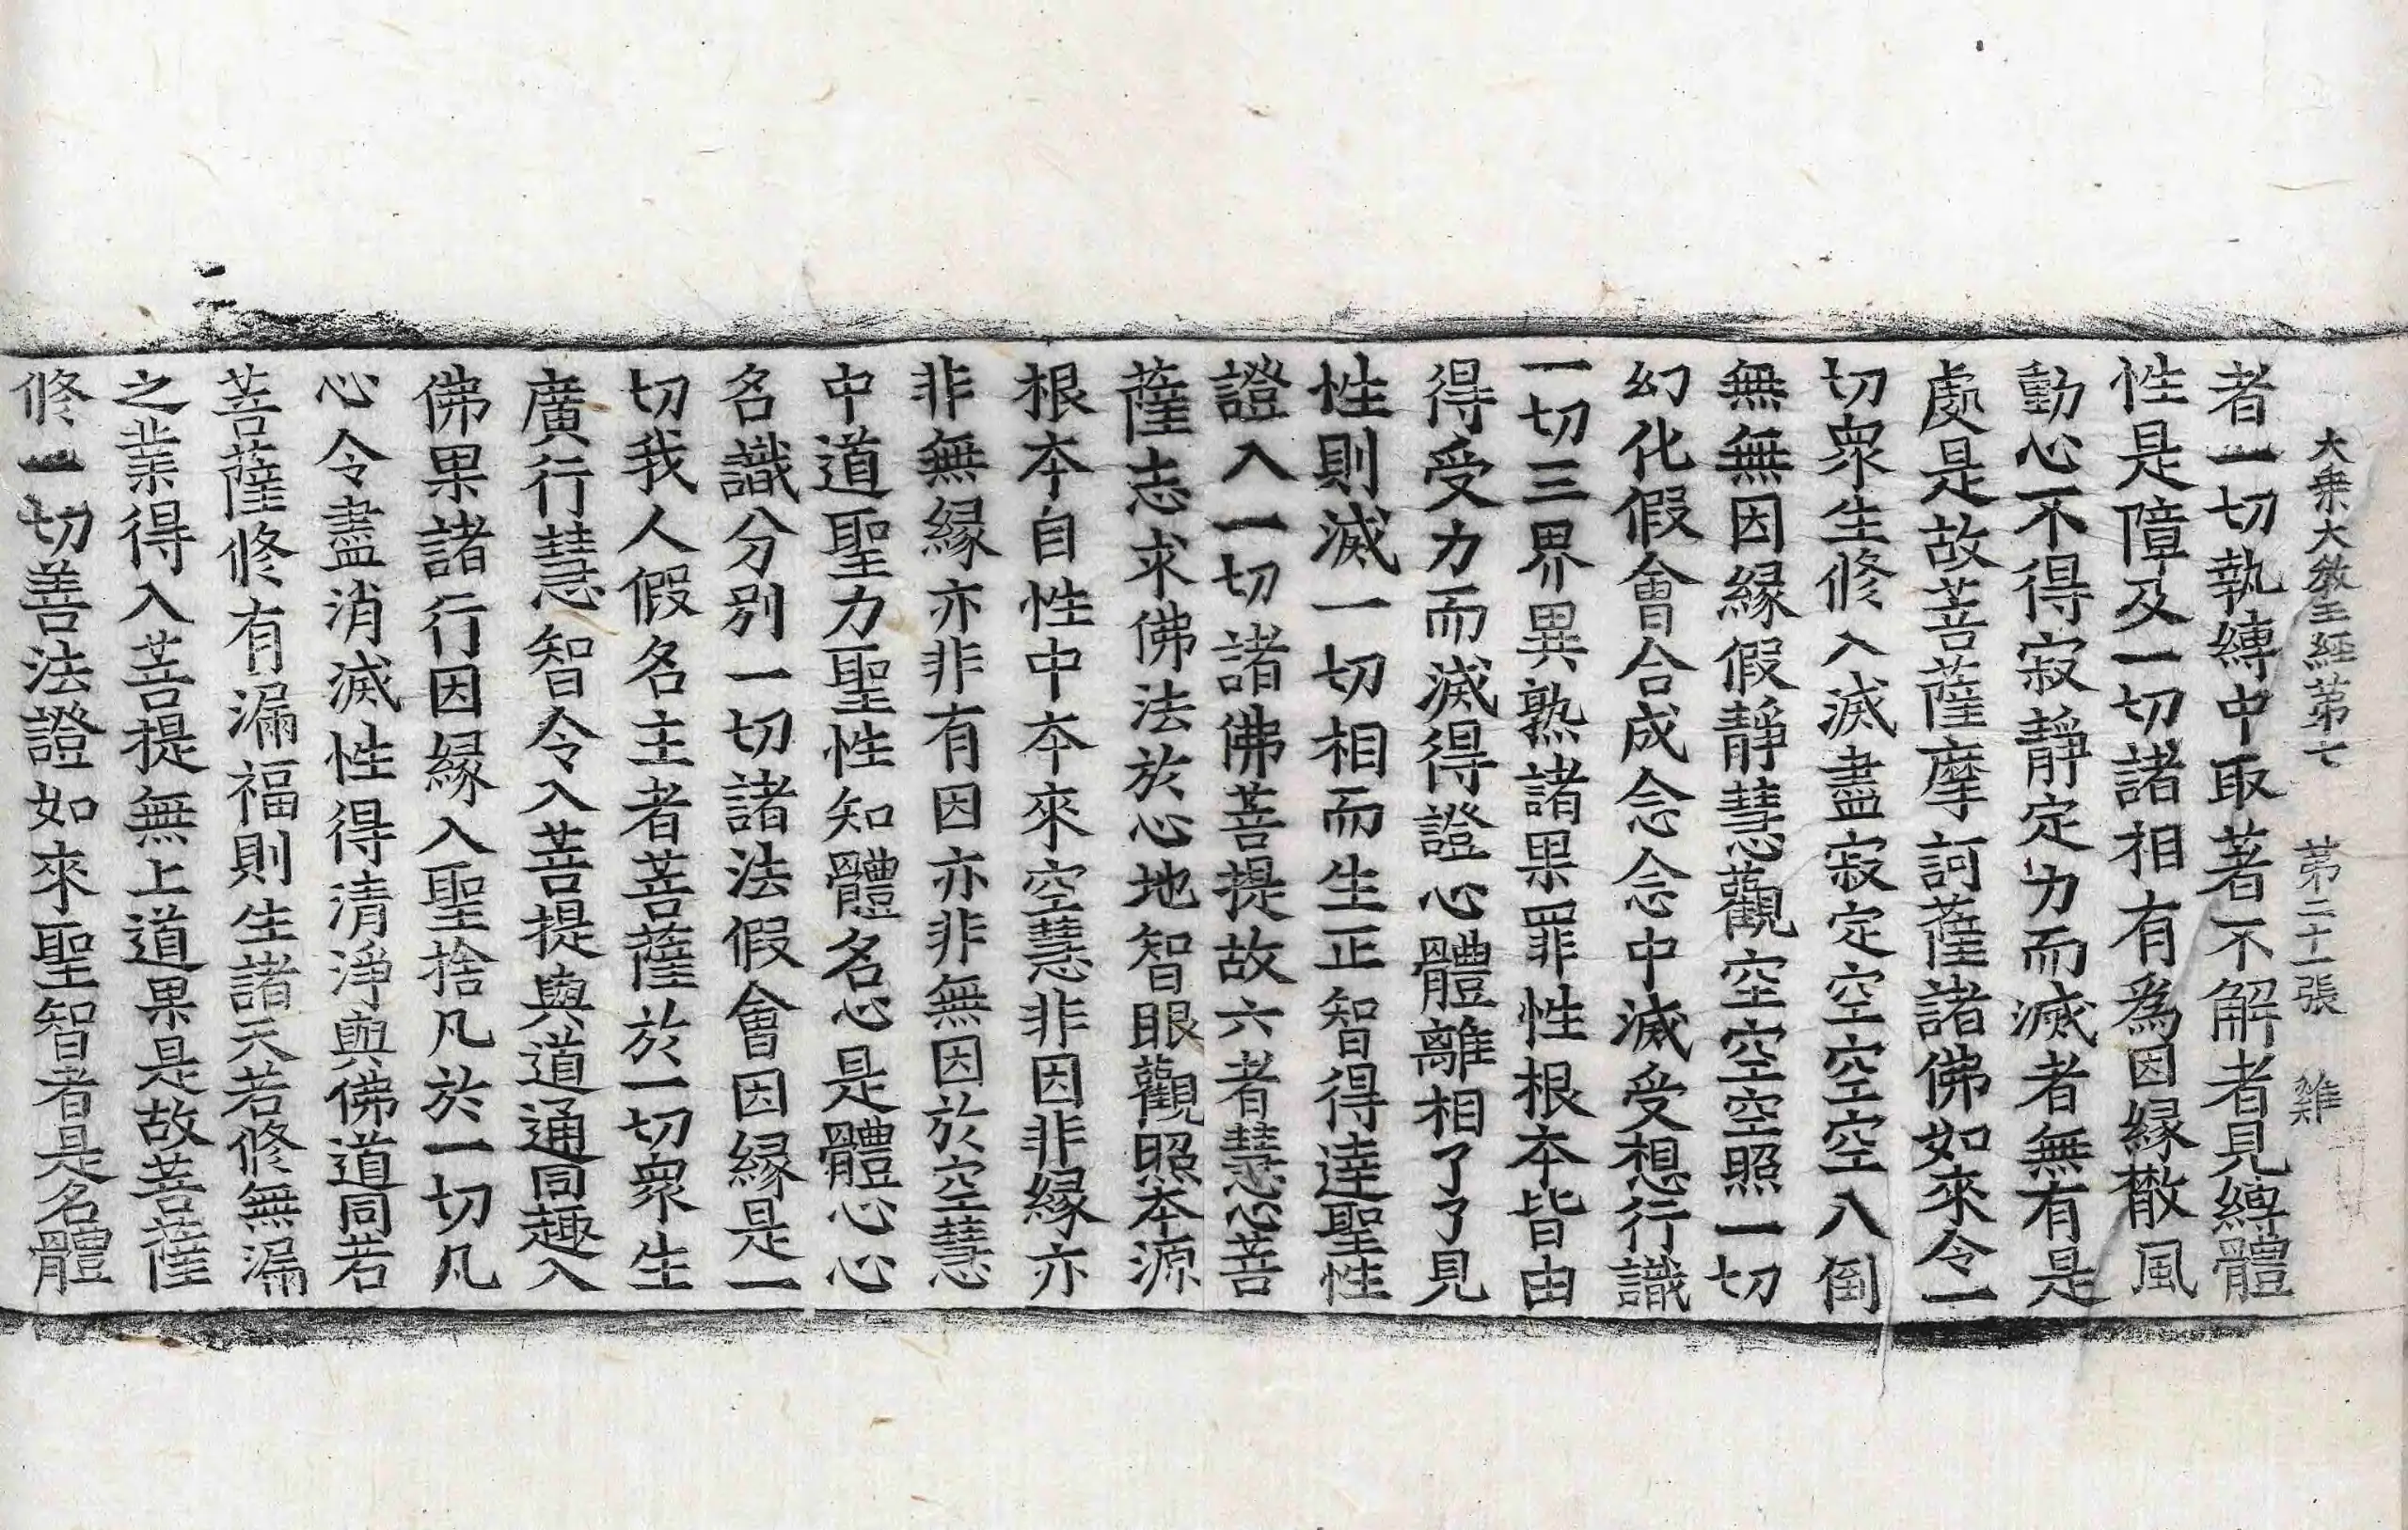 大乗大教王經第七　第二十一張　雞
者一切執縛中取著不解者見縛體
性是障及一切諸相有為因緣散風
動心不得寂靜定力而滅者無有是
處是故菩薩摩訶薩諸佛如來令一
切衆生修入滅盡寂定空空空八倒
無無因緣假靜慧觀空空空照一切
幻化假會合成念念中滅受想行識
一切三界異熟諸果罪性根本皆由
得受力而滅得證心體離相了了見
性則滅一切相而生正智得達聖性
證入一切諸佛菩提故六者慧心菩
薩志求佛法於心地智眼觀照本源
根本自性中本來空慧非因非緣亦
非無緣亦非有因亦非無因於空慧
中道聖力聖性知體名心是體心心
名識分別一切諸法假會因緣是一
切我人假名主者菩薩於一切衆生
廣行慧智令入菩提與道通同趣入
佛果諸行因緣入聖捨凡於一切凡
心令盡消滅性得清淨與佛道同若
菩薩修有漏福則生諸天若修無漏
之業得入菩提無上道果是故菩薩
修一切善法證如來聖智者是名體